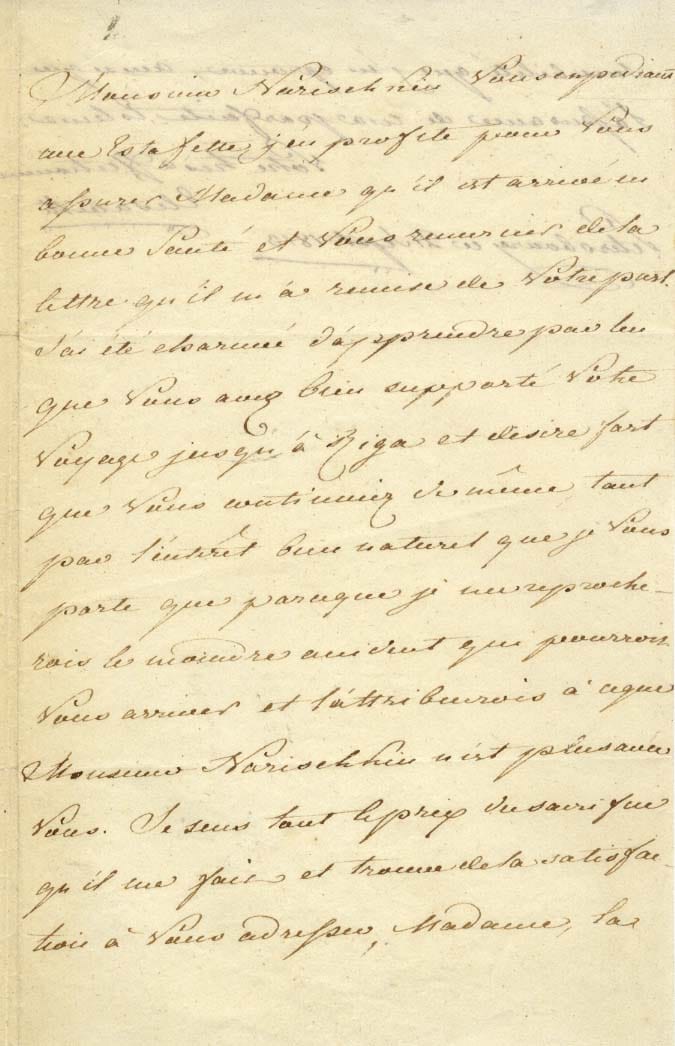 Monsieur Narischkin Vous expediant
une Estafette j'en profite pour Vous
assurer Madame qu'il est arrivé en
bonne Santé et Vous remercier de la
lettre qu'il m'a remise de Votre part.
J'ai été charmée d'apprendre par lui
que Vous avez bien supporté Votre
Voyage jusqu'à Riga et desire fort
que Vous continuiez de même tant
par l'intérêt bien naturel que je Vous
porte que parceque je me reproche-
rois le moindre accident qui pourroit
Vous arriver et l'attribuerois à ceque
Monsieur Narischkin n'est plus avec
Vous. Je sens tout le prix du sacrifice
qu'il me fait et trouve de la satisfac-
tion à Vous adresser, Madame, la